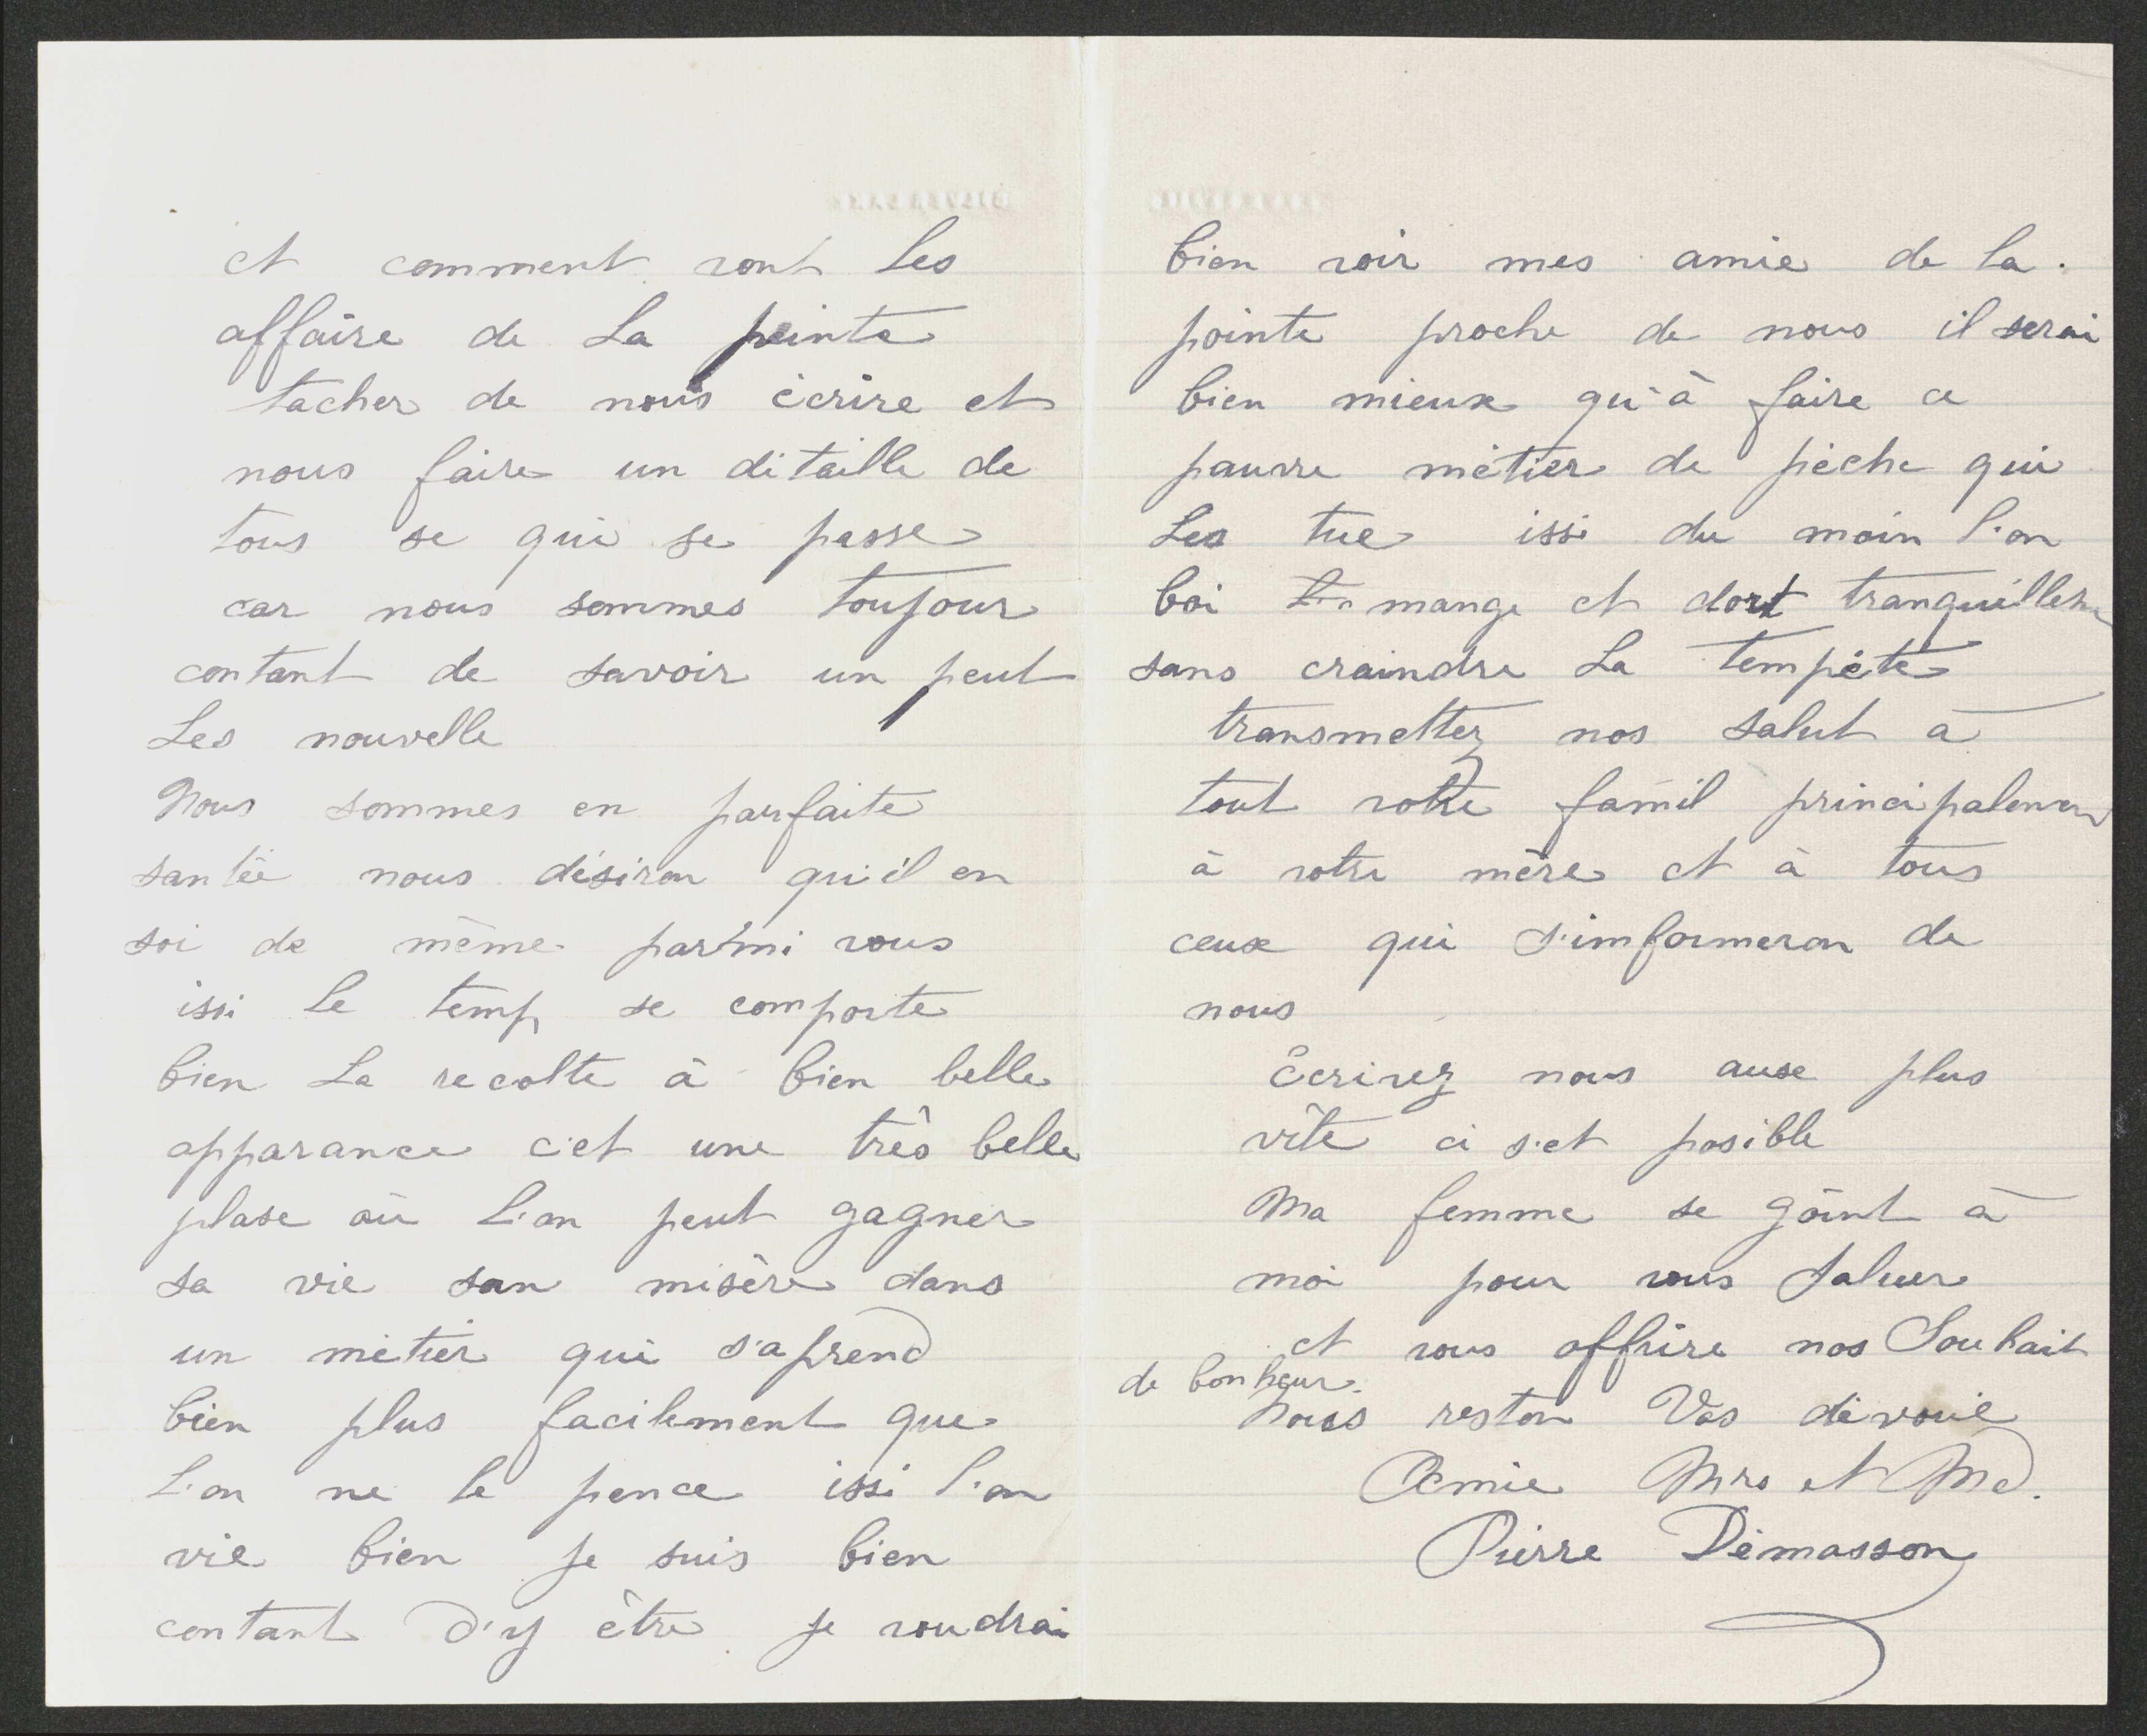 et comment vont les
affaire de La pointe
tacher de nous écrire et
nous faire un détaille de
tous se qui se passe
car nous sommes toujour
contant de savoir un peut
Les nouvelle
Nous sommes en parfaite
santée nous désiron qu'il en
soi de même parmi vous
issi le temp se comporte
bien La recolte à bien belle
apparance c'et une très belle
plase où L'on peut gagner
sa vie san misère dans
un métier qui s'aprend
bien plus facilement que
L'on ne le pence issi l'on
vie bien je suis bien
contant d'y être je voudrai
bien voir mes amie de la
pointe proche de nous il serai
bien mieux qu'à faire ce
pauvre métier de pêche qui
Les tue issi du moin l'on
boi mange et dort tranquillem
sans craindre La tempête
transmettez nos salut à
tout votre famil principalemen
à votre mère et à tous
ceux qui s'imformeron de
nous
Écrivez nous aux plus
vîte ci s'et posible
Ma femme se goint à
moi pour vous saluer
et vous offrire nos Souhait
de bonheur.
Nous reston Vos dévoué
Amie Mrs et Md.
Pierre Démasson